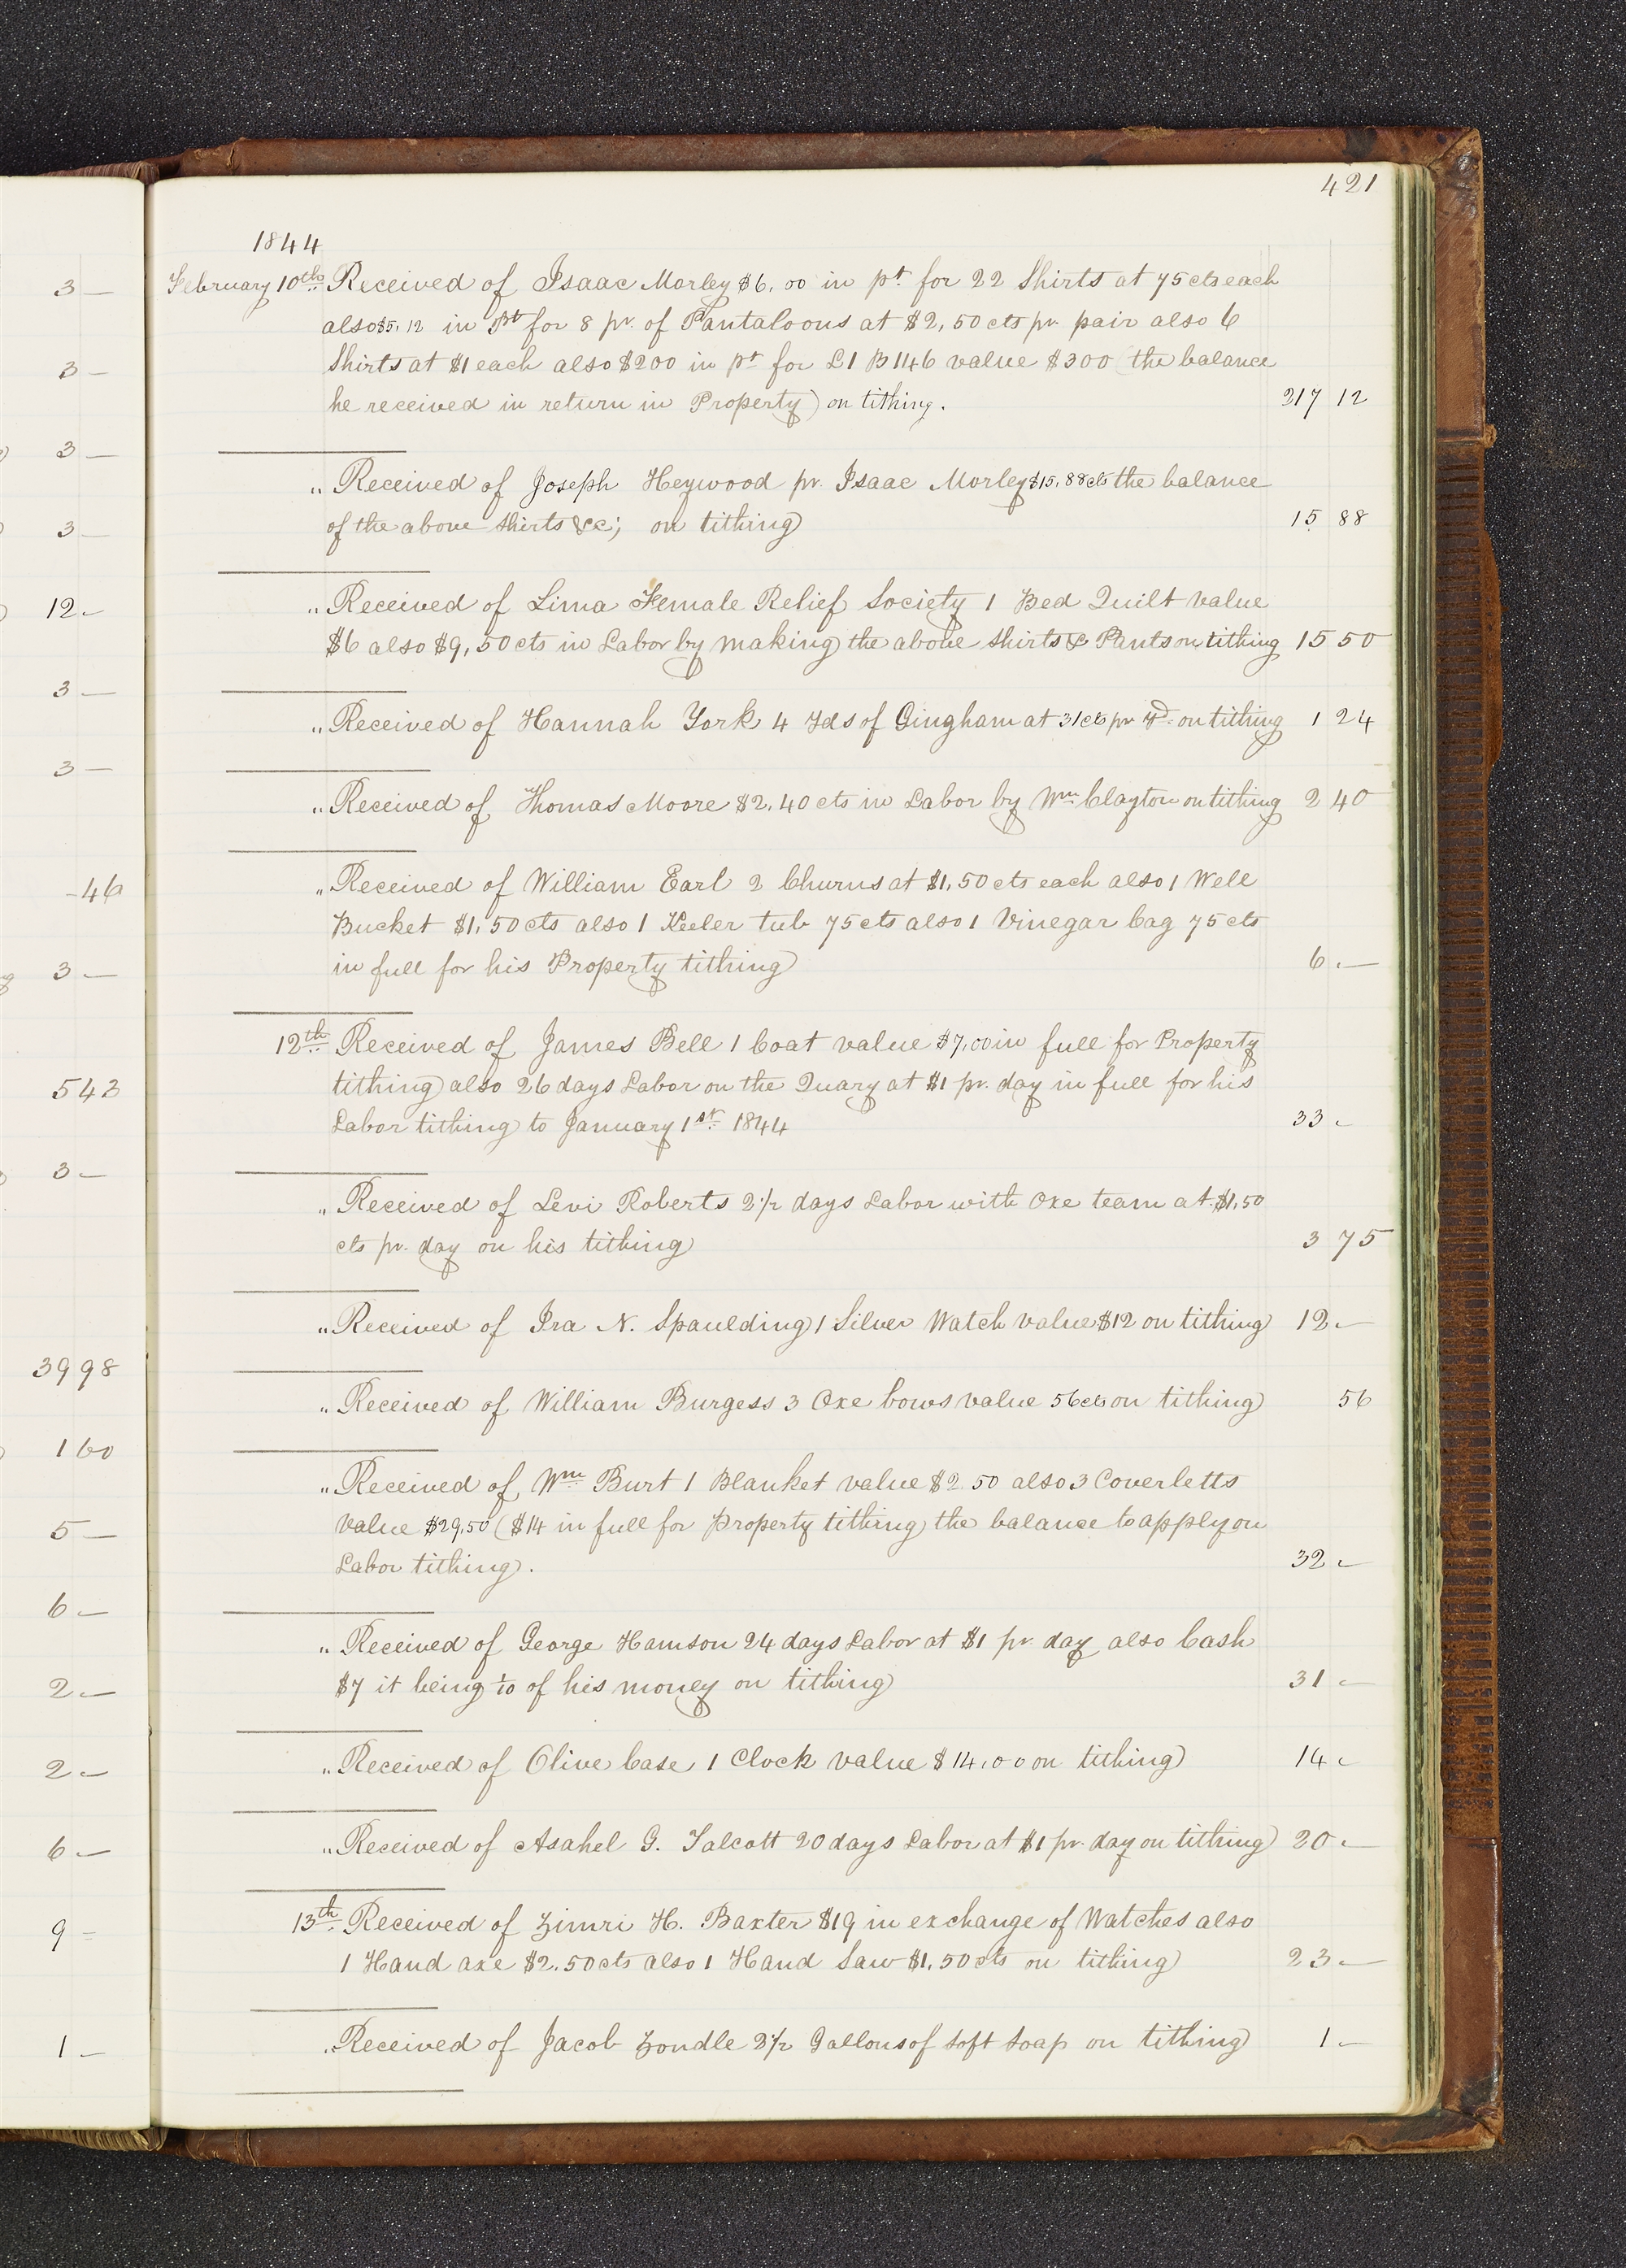 421
1844
February 10th Received of Isaac Morley $6,00 in pt for 22 Shirts at 75 cts each
also $5,12 in Pt for 8 pr. of Pantaloons at $2,50 cts pr. pair also 6
Shirts at $1 each also $200 in pt for L1 B146 value $300 (the balance
he received in return in Property) on tithing. 217 12
„ Received of Joseph Heywood pr. Isaac Morley $15,88 cts the balance
of the above Shirts &c; on tithing 15 88
„ Received of Lima Female Relief Society 1 Bed Quilt value
$6 also $9,50 cts in Labor by making the above shirts & Pants on tithing 15 50
„ Received of Hannah York 4 Yds of Gingham at 31 cts pr Yd. on tithing 1 24
„ Received of Thomas Moore $2,40 cts in Labor by Wm Clayton on tithing 2 40
„ Received of William Earl 2 Churns at $1,50 cts each also 1 Well
Bucket $1,50 cts also 1 Keeler tub 75 cts also 1 Vinegar Cag 75 cts
in full for his Property tithing 6.—
12th Received of James Bell 1 Coat value $7,00 in full for Property
tithing also 26 days Labor on the Quary at $1 pr. day in full for his
Labor tithing to January 1st 1844 33 -
„ Received of Levi Roberts 2½ days Labor with Oxe team at $1,50
cts pr. day on his tithing 3 75
„ Received of Ira N. Spaulding 1 Silver Watch value $12 on tithing 12.—
„ Received of William Burgess 3 Oxe bows value 56 cts on tithing 56
„ Received of Wm Burt 1 Blanket value $2.50 also 3 Coverletts
value $29,50 ($14 in full for Property tithing the balance to apply on
Labor tithing). 32 -
„ Received of George Hamson 24 days Labor at $1 pr. day also Cash
$7 it being 1/10 of his money on tithing 31 -
„ Received of Olive Case, 1 Clock value $14,00 on tithing 14 -
„ Received of Asahel G. Talcott 20 days Labor at $1 pr. day on tithing 20.—
13th Received of Zimri H. Baxter $19 in exchange of Watches also
1 Hand axe $2.50 cts also 1 Hand Saw $1,50 cts on tithing 23.—
„ Received of Jacob Zondle 2½ Gallons of soft soap on tithing 1 —
3 —
3 —
3 —
3 —
12 -
3 —
3 —
- 46
3 —
5 43
3 —
39 98
1 60
5 —
6 —
2 —
2 —
6 —
9 =
1 —